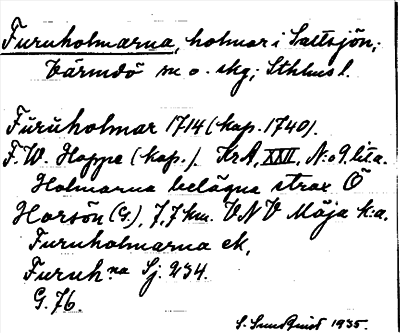 Furuholmarna, holmar i Saltsjön;
Värmdö sn o. skg; Sthlms l.
Furuholmar 1714 (kop. 1740).
F. W. Hoppe (kop.) KrA, XXII, N:o 9 lit a.
Holmarna belägna strax Ö
Horsön (G.), 7,7 km. VNV Möja k:a.
Furuholmarna ek,
Furuh:na Sj. 234.
G. 76.
S. Sundquist 1935.